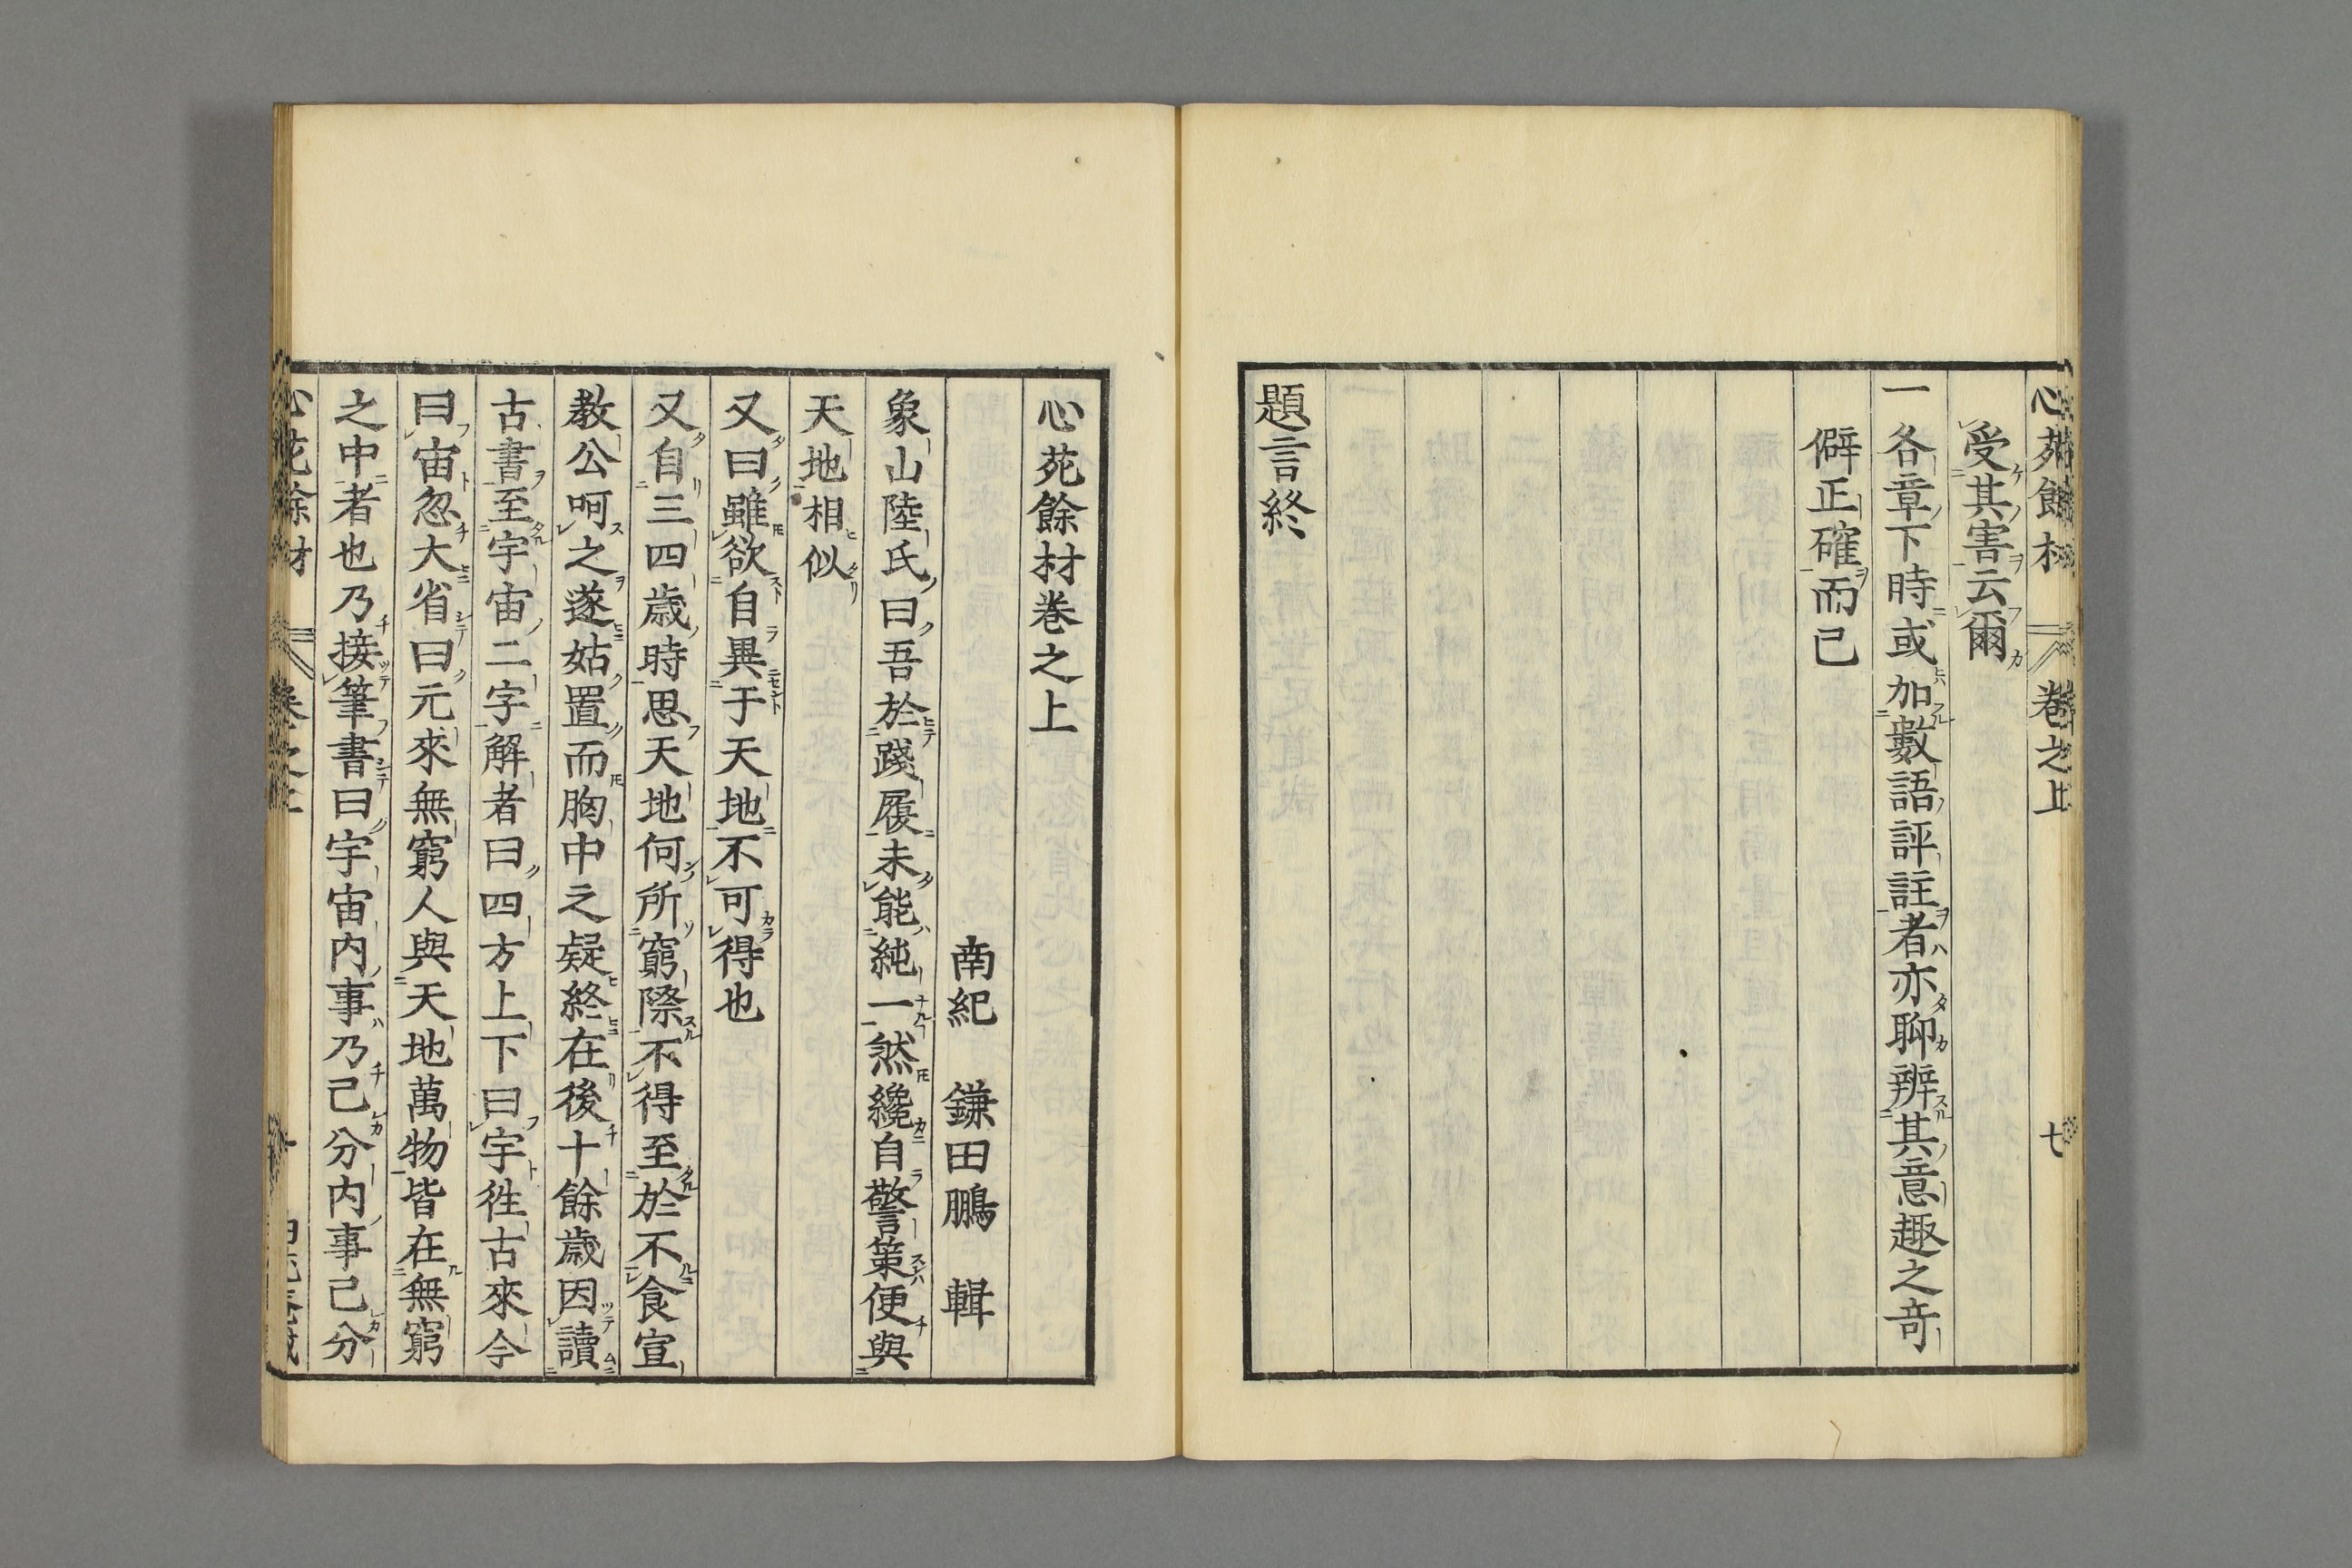 心苑餘材 卷之上 七
受其害云爾
一各章下時或加數語評註者亦聊辨其意趣之奇
僻正確而已
題言終
心苑餘材卷之上
南紀 鎌田鵬 輯
象山陸氏曰吾於踐履未能純一然纔自警策便與
天地相似
又曰雖欲自異于天地不可得也
又自三四歳時思天地何所窮際不得至於不食宣
教公呵之遂姑置而胸中之疑終在後十餘歳因讀
古書至宇宙二字解者曰四方上下曰宇徃古來今
曰宙忽大省曰元來無窮人與天地萬物皆在無窮
之中者也乃接筆書曰宇宙内事乃己分内事己分